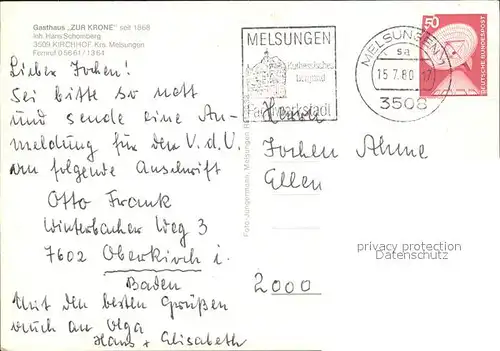 Gasthaus „ZUR KRONE" seit 1868
Inh. Hans Schomberg
3509 KIRCHHOF Krs. Melsungen
Fernruf 05661/1364
Lieber Jochen!
Sei bitte so nett
und sende eine An-
meldung für den V.d.U.
an folgende Anschrift
Otto Frank
Winterbacher Weg 3
7602 Oberkirch i.
Baden
Mit den besten Grüßen
auch an Olga
Hans + Elisabeth
Foto-Jungermann, Melsungen
MELSUNGEN
Fachwerkstadt
MELSUNGEN 1
sa
15.7.80 17
3508
50
DEUTSCHE BUNDESPOST
Herrn
Jochen Ahme
Ellen
2000
privacy protection
Datenschutz